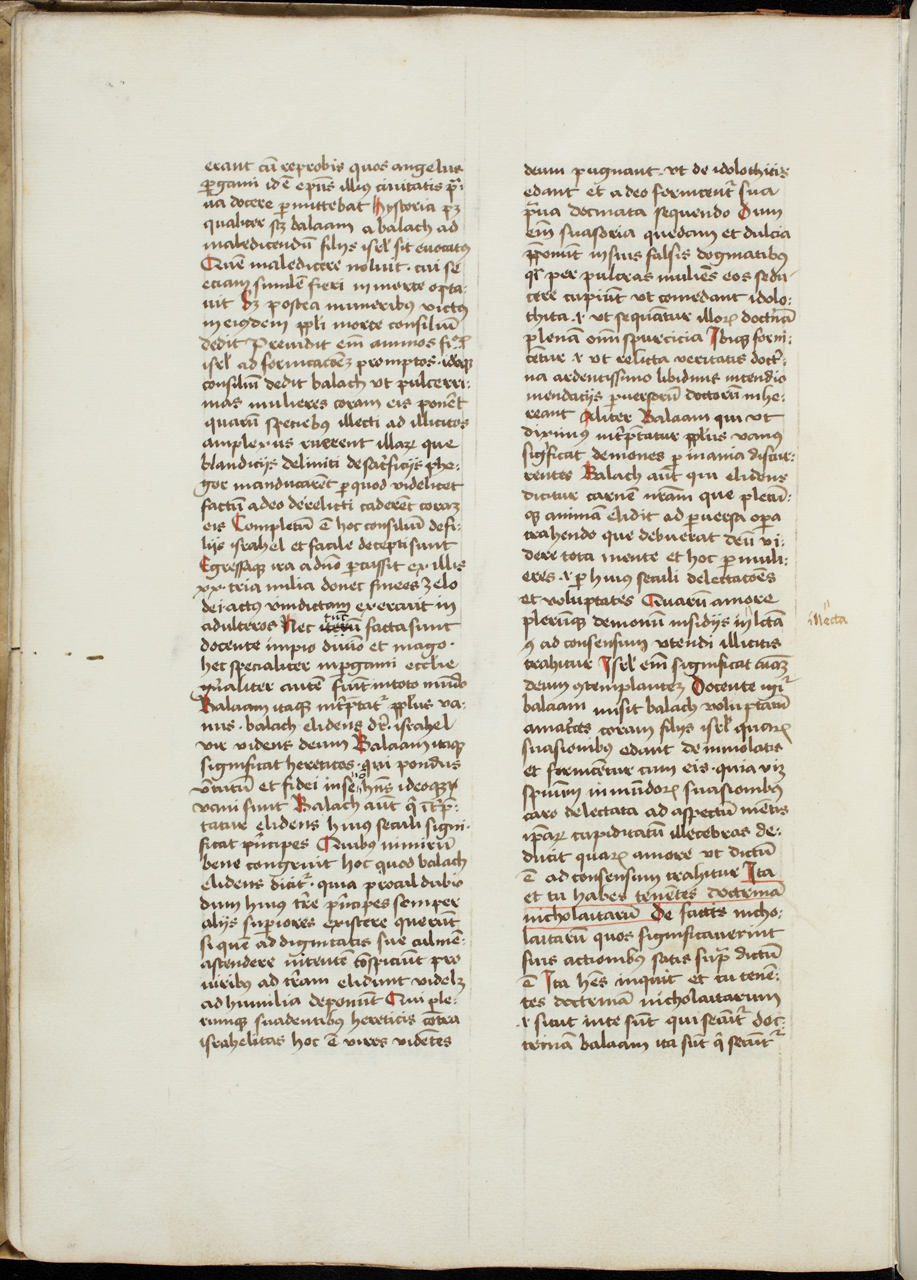 erant cū reprobis quos angelus
ꝑgami id ē ep̄us illius ciuitatis p̄ua
ua docere ꝑmittebat hystoria pꝫ
qualiter scꝫ balaam a balach ad
maledicendū filijs isrl̄ sit euocatus
Quē maledicere noluit · cui se
eciam similē fieri in morte opta-
uit Sꝫ postea muneribus victus
in eiusdem ppl̄i morte consiliū
dedit Preuidit em̄ animos fi.oꝝ
isrl̄ ad fornicacōeꝫ promptos · ideoqꝫ
consiliū dedit balach vt pulcerri-
mas mulieres coram eis ponēt
quarū speciebus illecti ad illicitos
amplexus ruerent illaꝝ que
blandicijs deliniti de sacͥficijs phe-
gor manducarēt ꝑ quod videlicet
factū a deo derelicti caderēt coraꝫ
eis Completū ē hoc consiliū de fi-
lijs israhel et facile decepti sunt
Egressaqꝫ ira a dn̄o ꝑcussit ex illis
xx · tria milia donec finees zelo
dei actus vindictam exercuit in
adulteros Nec tūc facta sunt
docente impio diuīo et mago ·
hec specialiter in ꝑgami ecclīe
gn̄aliter autē fiūt in toto mūdo
Balaam itaqꝫ int̄p̄tatͬ ppl̄us va-
nus · balach elidens dr̄ · israhel
vir videns deum Balaam itaqꝫ
significat hereticos · qui pondus
v̄tutū et fidei in se nō hn̄t ideoqꝫ
vani sunt Balach aūt q̄ īt̄p̄-
tatur elidens huius seculi signi-
ficat pͥncipes Quibus nimirū
bene congruit hoc quod balach
elidens dicitͬ · quia procul dubio
dum huius tr̄re pͥncipes semper
alijs suꝑiores existere querūt
si quē ad dignitatis sue culmē-
ascendere nitentē cōspiciūt pro
viribus ad tr̄am elidunt videlꝫ
ad humilia deponūt Qui ple-
rumqꝫ suadentibus hereticis cōtra
israhelitas hoc ē viros vidētes
deum pugnant · vt de idolothitis
edant et a deo fornicentͬ sua
praua docmata sequendo Dum
em̄ suasoria quedam et dulcia
ꝓponūt in suis falsis dogmatibus
qͣ per pulcras mulieres eos sedu-
cere cupiūt vt comedant idolo-
thita · ⁊ vt sequātur illoꝝ doctͥnā
plenā om̄i spurcicia Ibiqꝫ forni-
cētur ⁊ vt relicta veritatis doctͥ-
na ardentissimo libidinis incendio
mendacijs ꝑuersorū doctorū inhe-
reant Aliter Balaam qui vt
diximus int̄p̄tatur ppl̄us vanus
sigͥficat demones ꝑ inania discur-
rentes Balach aūt qui elidens
dicitur carnē nr̄am que plerū-
qꝫ animā elidit ad ꝑuersa oꝑa
trahendo que debuerat deū vi-
dere tota mente et hoc ꝑ muli-
eres · ⁊ ꝑ huius seculi delectacōes
et voluptates Quarū amore
plerūqꝫ demonū insidijs illecta
illecta
9 ad consensum vtendi illicitis
trahitur Isrl̄ em̄ significat aīaꝫ
deum 9templanteꝫ Docente igͥͬ
balaam misit balach voluptatū
amatͥces coram filijs isrl̄ quaꝝ
suasionibus edunt de immolatis
et fornicētur cum eis · quia viꝫ
sp̄iuum inmūdoꝝ suasionibus
caro delectata ad aspectū mētis
ip̄aꝝ cupiditatū illecebras de-
ducit quaꝝ amore vt dictū
ē ad consensum trahitur Ita
et tu habes tenētes doctrinā
nicholaitarū De factis nicho-
laitarū quos significauerint
suis actionibus satis supͣ dictū
ē Ita hēs inquit et tu tenē-
tes doctrinā nicholaitarum
· ⁊ sicut in te sūt qui secūtͬ doc-
trinā balaam ita sūt q̄ secūtͬ